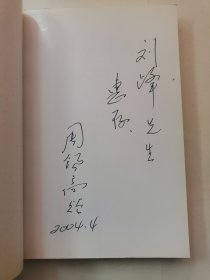 刘峰先生
惠存
周
2004.4